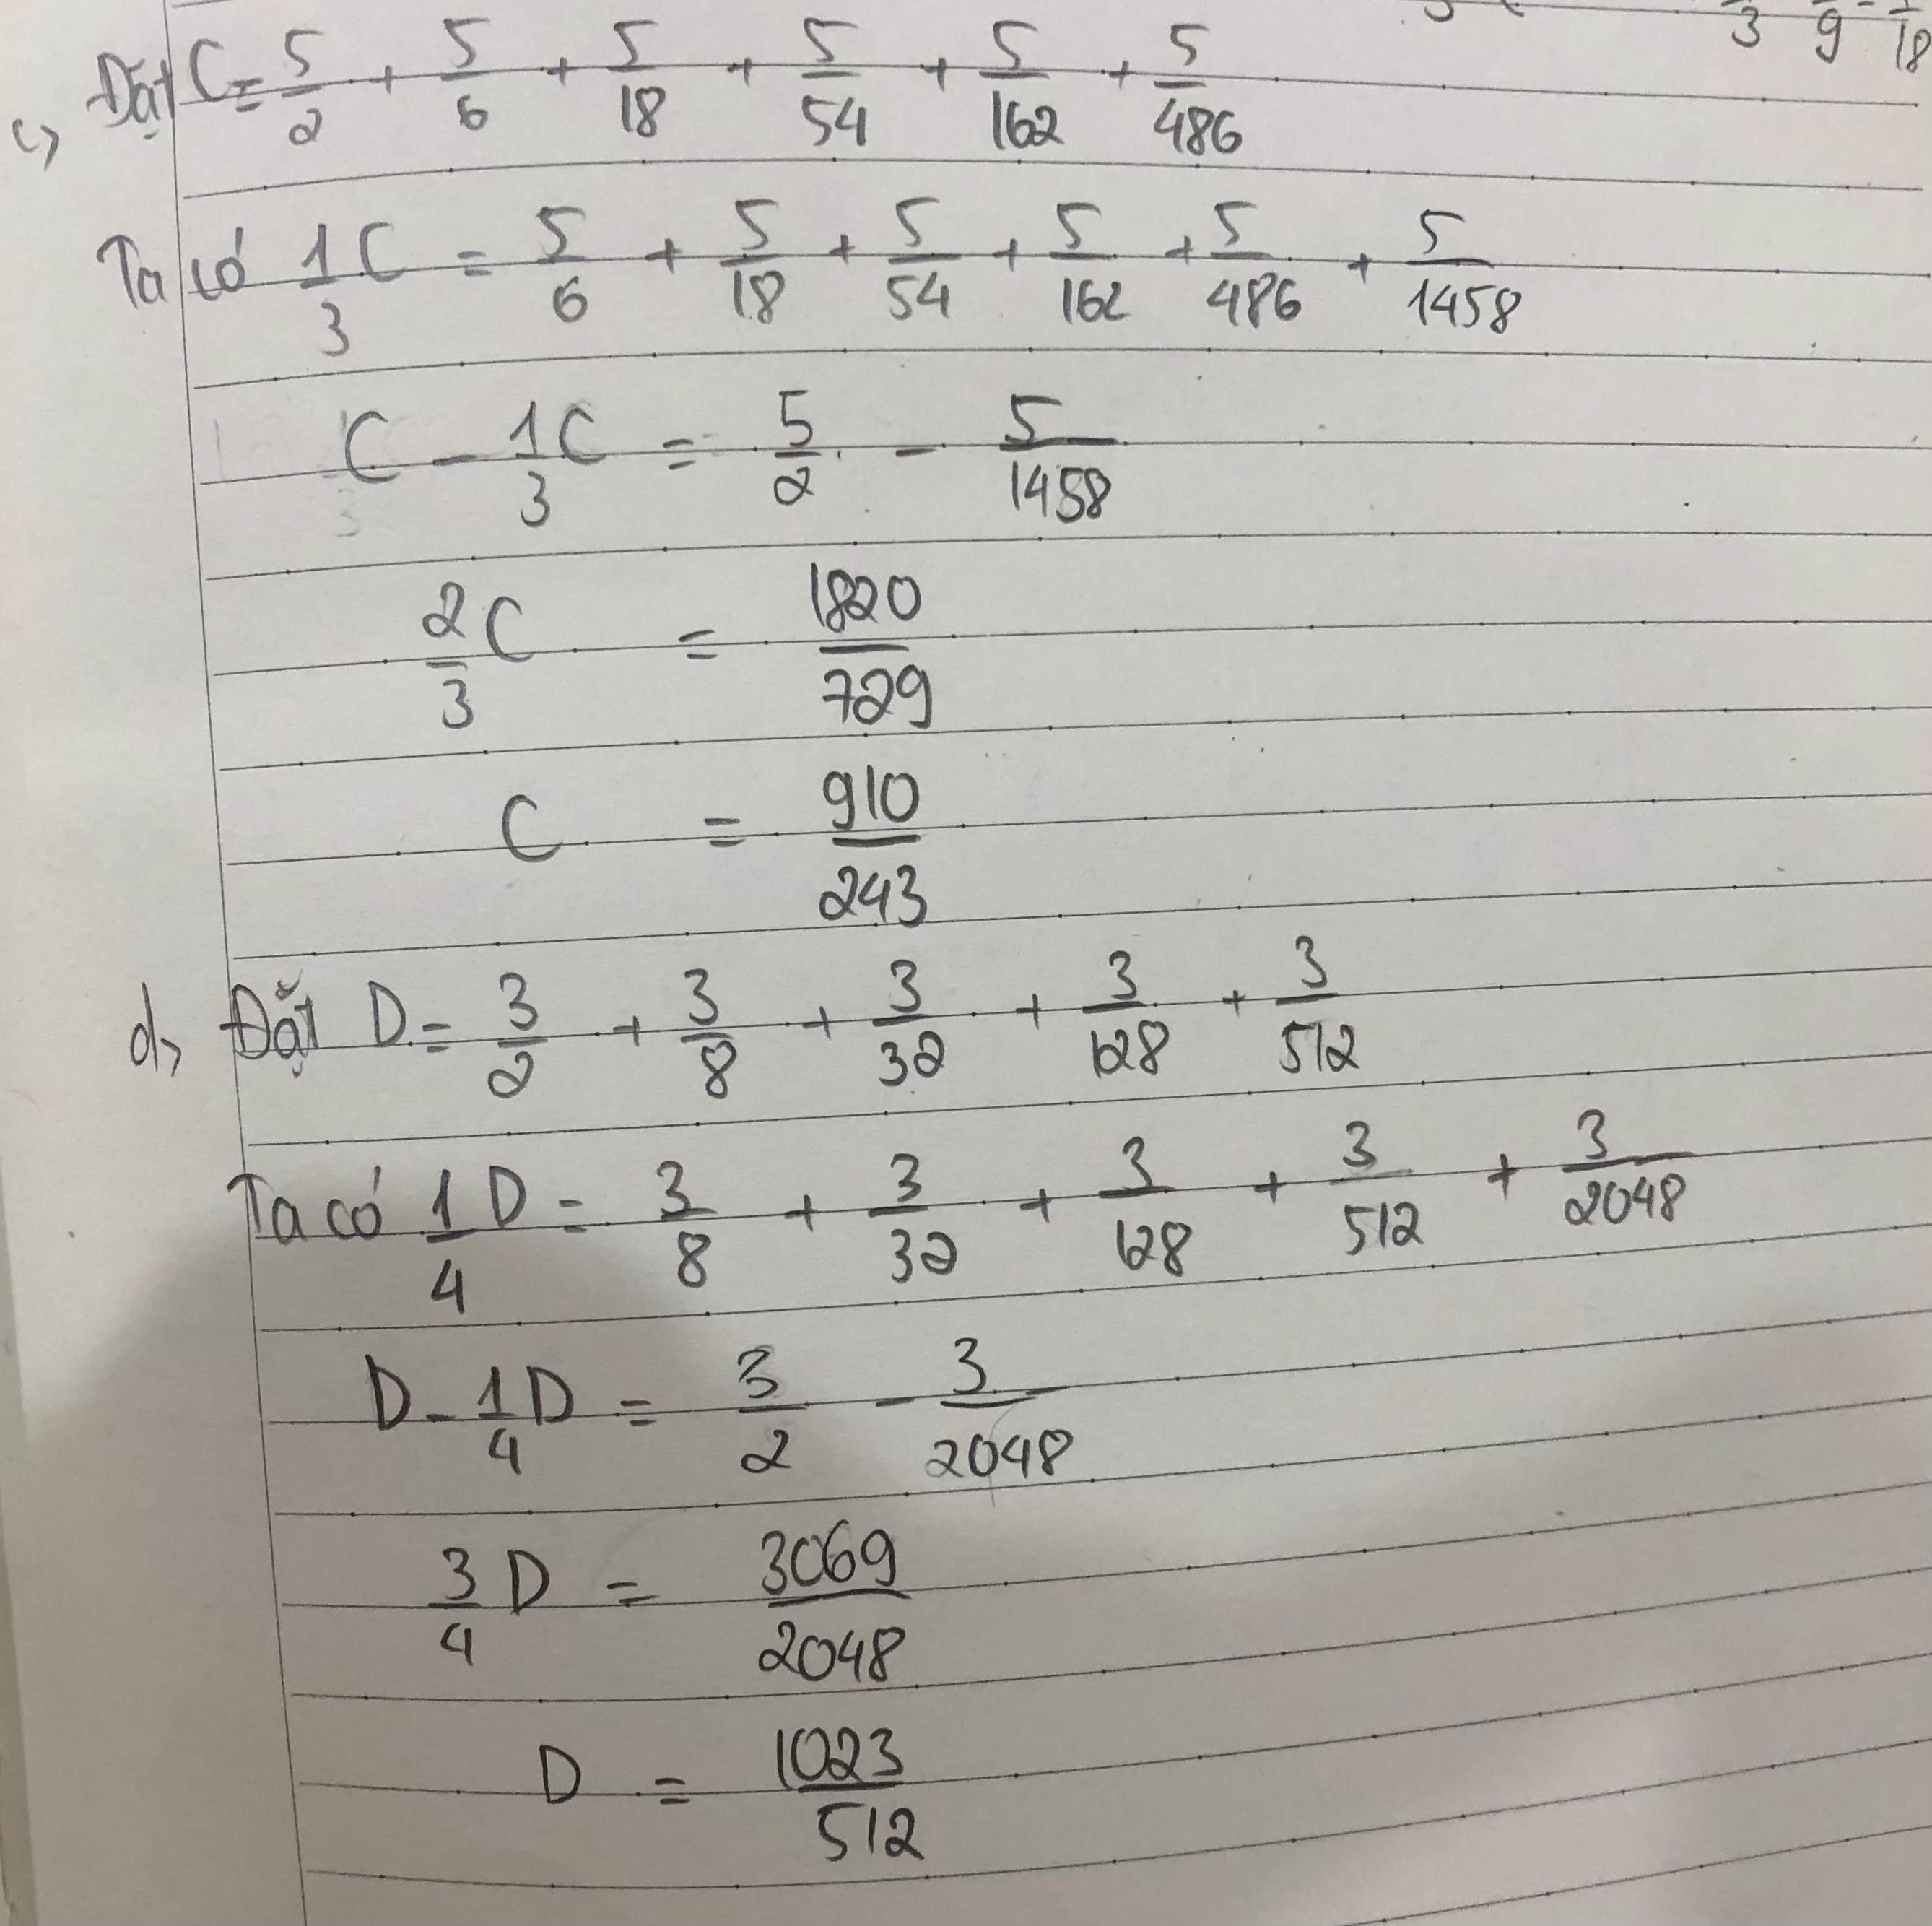 3 9 18
c, Đặt C = 5/2 + 5/6 + 5/18 + 5/54 + 5/162 + 5/486
Ta có 1/3 C = 5/6 + 5/18 + 5/54 + 5/162 + 5/486 + 5/1458
C - 1/3 C = 5/2 - 5/1458
2/3 C = 1820/729
C = 910/243
d, Đặt D = 3/2 + 3/8 + 3/32 + 3/128 + 3/512
Ta có 1/4 D = 3/8 + 3/32 + 3/128 + 3/512 + 3/2048
D - 1/4 D = 3/2 - 3/2048
3/4 D = 3069/2048
D = 1023/512